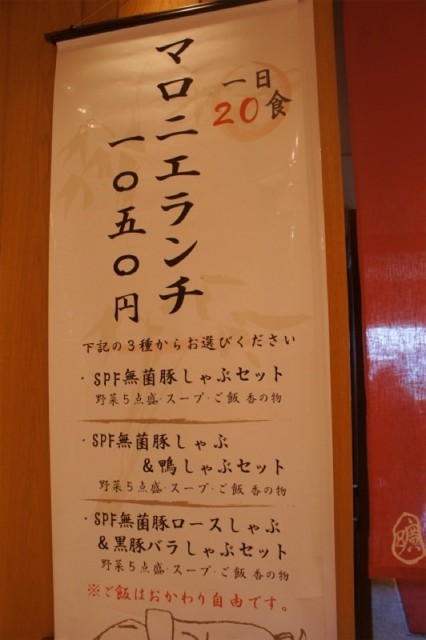 一日
20食
マロニエランチ
一〇五〇円
下記の3種からお選びください
・SPF無菌豚しゃぶセット
野菜5点盛・スープ・ご飯 香の物
・SPF無菌豚しゃぶ
&鴨しゃぶセット
野菜5点盛・スープ・ご飯 香の物
・SPF無菌豚ロースしゃぶ
&黒豚バラしゃぶセット
野菜5点盛・スープ・ご飯 香の物
※ご飯はおかわり自由です。